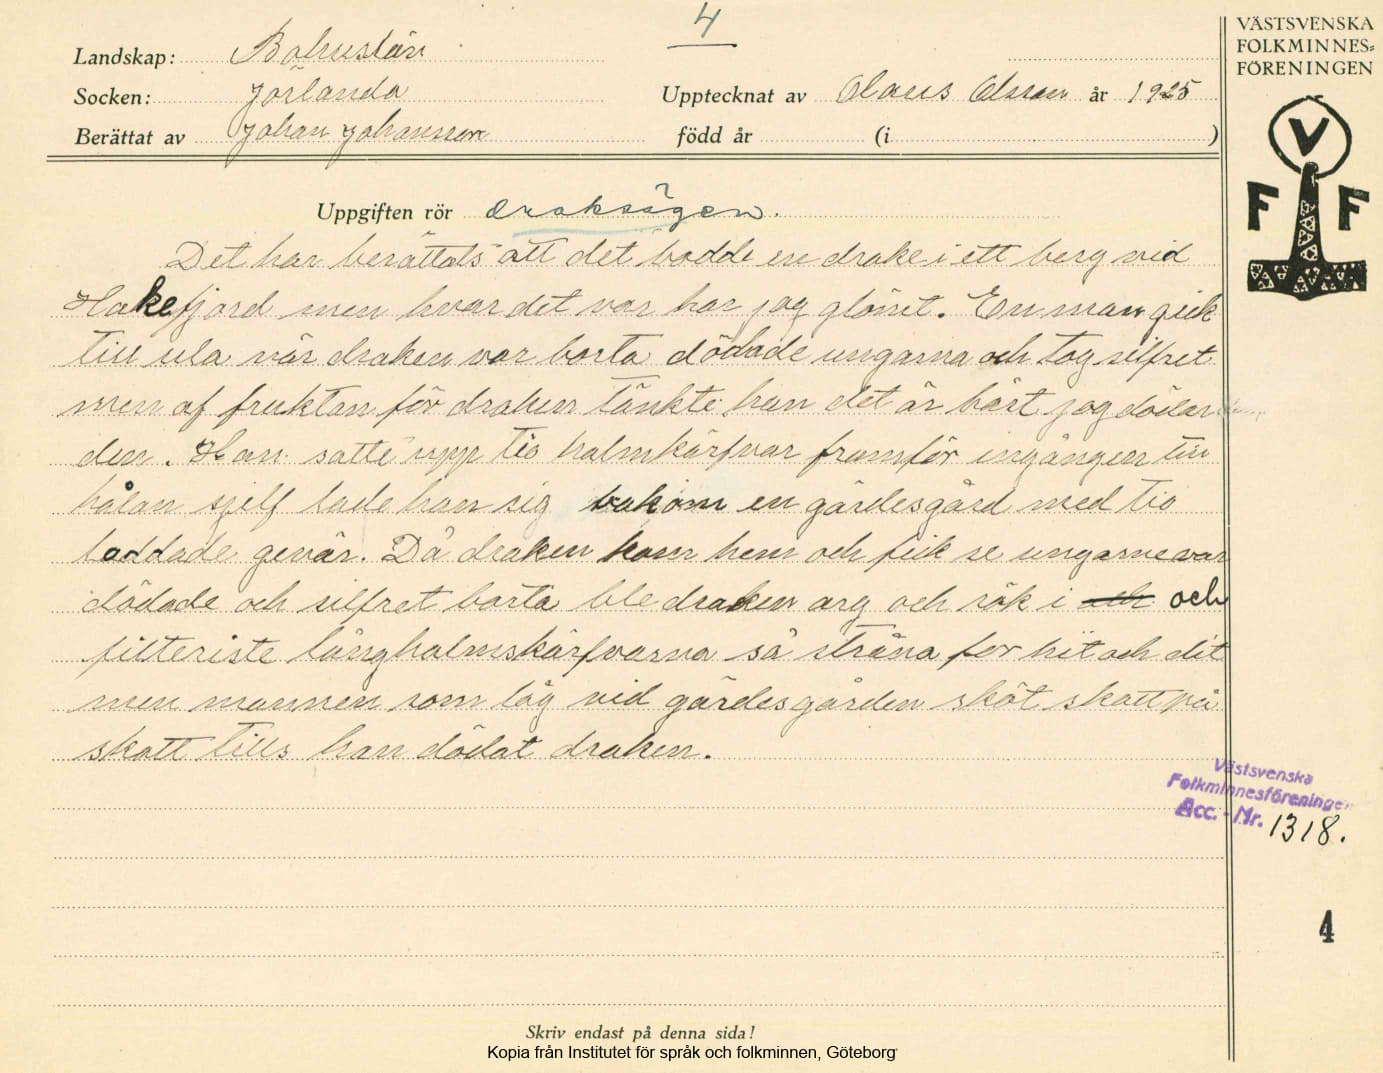 4
VÄSTSVENSKA
FOLKMINNES=
FÖRENINGEN
V
F F
Landskap: Bohuslän
Socken: Jörlanda
Upptecknat av Claus Olsson år 1925
Berättat av Johan Johansson
född år (i )
Uppgiften rör Draksägen.
Det har berättats att det bodde en drake i ett berg vid
Hakefjord men hvar det var har jag glömt. En man gick
till ula när draken var borta dödade ungarna och tog silfret
men af fruktan för draken tänkte han det är bäst jag dödar
den. Han satte upp tio halmkärfvar framför ingången till
hålan sjelf lade han sig bakom en gärdesgård med tio
laddade gevär. Då draken kom hem och fick se ungarne var
dödade och silfret borta ble draken arg och rök i och och
fitteriste långhalmskärfvarna så stråna for hit och dit
men mannen som låg vid gärdesgården sköt skott på
skott tills han dödat draken.
Västsvenska
Folkminnesföreningen
Acc. - Nr. 1318.
4
Skriv endast på denna sida!
Kopia från Institutet för språk och folkminnen, Göteborg